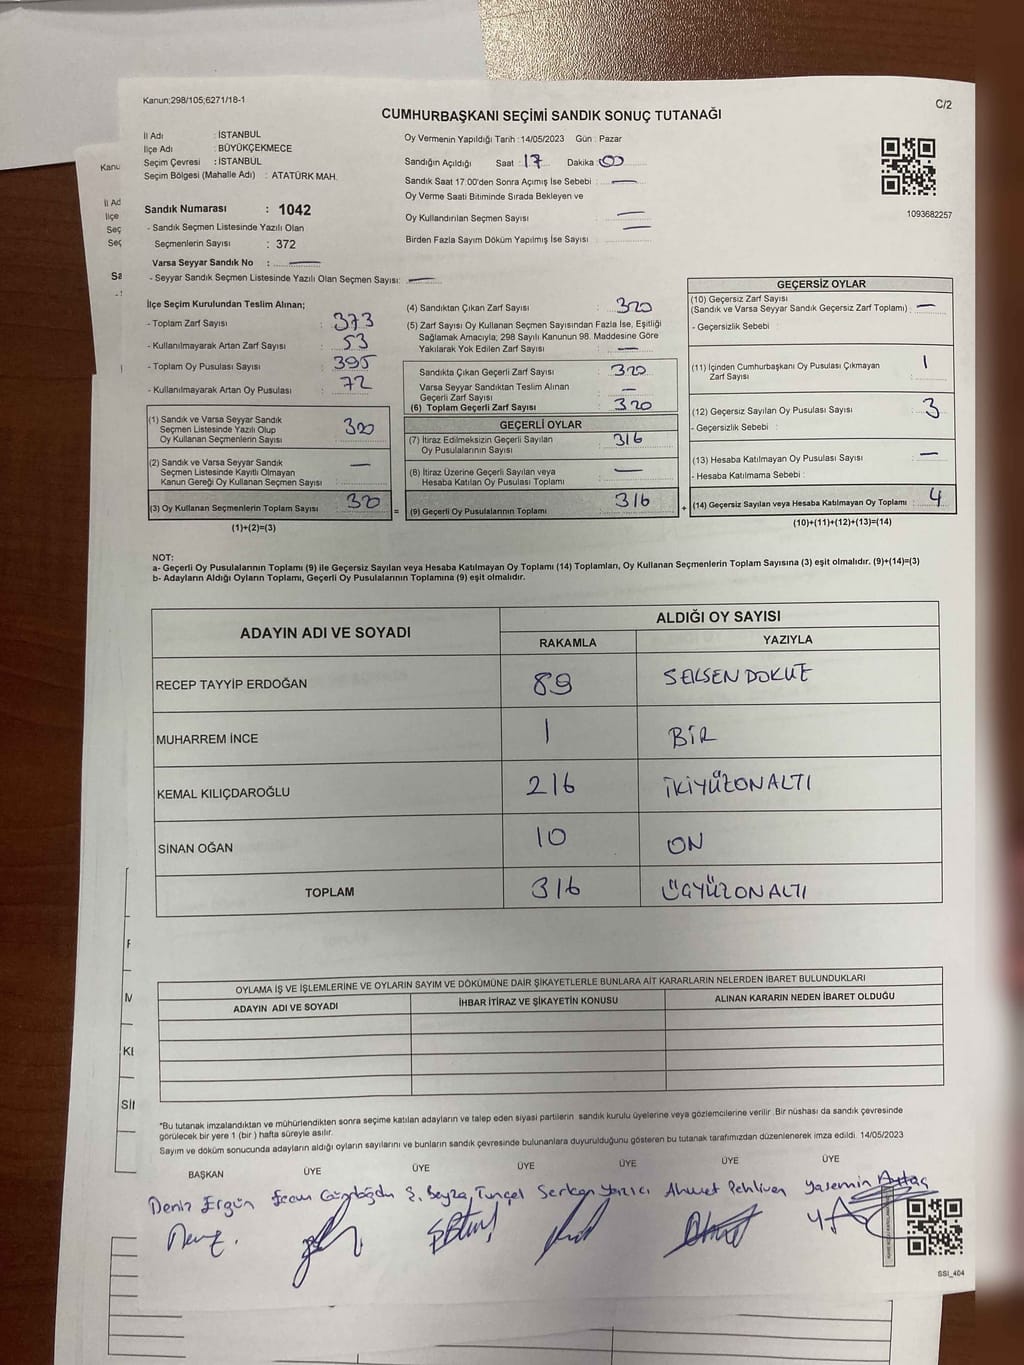 Kanun:298/105;6271/18-1
C/2
CUMHURBAŞKANI SEÇİMİ SANDIK SONUÇ TUTANAĞI
İl Adı : İSTANBUL
İlçe Adı : BÜYÜKÇEKMECE
Seçim Çevresi : İSTANBUL
Seçim Bölgesi (Mahalle Adı) : ATATÜRK MAH.
Sandık Numarası : 1042
- Sandık Seçmen Listesinde Yazılı Olan
Seçmenlerin Sayısı : 372
Varsa Seyyar Sandık No : —
- Seyyar Sandık Seçmen Listesinde Yazılı Olan Seçmen Sayısı: —
Oy Vermenin Yapıldığı Tarih : 14/05/2023 Gün : Pazar
Sandığın Açıldığı Saat : 17 Dakika : 00
Sandık Saat 17.00'den Sonra Açımış İse Sebebi : —
Oy Verme Saati Bitiminde Sırada Bekleyen ve
Oy Kullandırılan Seçmen Sayısı : —
Birden Fazla Sayım Döküm Yapılmış İse Sayısı : —
1093682257
İlçe Seçim Kurulundan Teslim Alınan;
- Toplam Zarf Sayısı : 373
- Kullanılmayarak Artan Zarf Sayısı : 53
- Toplam Oy Pusulası Sayısı : 395
- Kullanılmayarak Artan Oy Pusulası : 72
(1) Sandık ve Varsa Seyyar Sandık
Seçmen Listesinde Yazılı Olup
Oy Kullanan Seçmenlerin Sayısı 320
(2) Sandık ve Varsa Seyyar Sandık
Seçmen Listesinde Kayıtlı Olmayan
Kanun Gereği Oy Kullanan Seçmen Sayısı : —
(3) Oy Kullanan Seçmenlerin Toplam Sayısı 320
(1)+(2)=(3)
(4) Sandıktan Çıkan Zarf Sayısı : 320
(5) Zarf Sayısı Oy Kullanan Seçmen Sayısından Fazla İse, Eşitliği
Sağlamak Amacıyla, 298 Sayılı Kanunun 98. Maddesine Göre
Yakılarak Yok Edilen Zarf Sayısı : —
Sandıkta Çıkan Geçerli Zarf Sayısı : 320
Varsa Seyyar Sandıktan Teslim Alınan
Geçerli Zarf Sayısı : —
(6) Toplam Geçerli Zarf Sayısı : 320
GEÇERLİ OYLAR
(7) İtiraz Edilmeksizin Geçerli Sayılan
Oy Pusulalarının Sayısı : 316
(8) İtiraz Üzerine Geçerli Sayılan veya
Hesaba Katılan Oy Pusulası Toplamı : —
= (9) Geçerli Oy Pusulalarının Toplamı : 316 +
GEÇERSİZ OYLAR
(10) Geçersiz Zarf Sayısı
(Sandık ve Varsa Seyyar Sandık Geçersiz Zarf Toplamı) : —
- Geçersizlik Sebebi :
(11) İçinden Cumhurbaşkanı Oy Pusulası Çıkmayan
Zarf Sayısı : 1
(12) Geçersiz Sayılan Oy Pusulası Sayısı : 3
- Geçersizlik Sebebi :
(13) Hesaba Katılmayan Oy Pusulası Sayısı : —
- Hesaba Katılmama Sebebi :
(14) Geçersiz Sayılan veya Hesaba Katılmayan Oy Toplamı : 4
(10)+(11)+(12)+(13)=(14)
NOT:
a- Geçerli Oy Pusulalarının Toplamı (9) ile Geçersiz Sayılan veya Hesaba Katılmayan Oy Toplamı (14) Toplamları, Oy Kullanan Seçmenlerin Toplam Sayısına (3) eşit olmalıdır. (9)+(14)=(3)
b- Adayların Aldığı Oyların Toplamı, Geçerli Oy Pusulalarının Toplamına (9) eşit olmalıdır.
ADAYIN ADI VE SOYADI
ALDIĞI OY SAYISI
RAKAMLA YAZIYLA
RECEP TAYYİP ERDOĞAN 89 SEKSENDOKUZ
MUHARREM İNCE 1 BİR
KEMAL KILIÇDAROĞLU 216 İKİYÜZONALTI
SİNAN OĞAN 10 ON
TOPLAM 316 ÜÇYÜZONALTI
OYLAMA İŞ VE İŞLEMLERİNE VE OYLARIN SAYIM VE DÖKÜMÜNE DAİR ŞİKAYETLERLE BUNLARA AİT KARARLARIN NELERDEN İBARET BULUNDUKLARI
ADAYIN ADI VE SOYADI İHBAR İTİRAZ VE ŞİKAYETİN KONUSU ALINAN KARARIN NEDEN İBARET OLDUĞU
*Bu tutanak imzalandıktan ve mühürlendikten sonra seçime katılan adayların ve talep eden siyasi partilerin sandık kurulu üyelerine veya gözlemcilerine verilir .Bir nüshası da sandık çevresinde
görülecek bir yere 1 (bir ) hafta süreyle asılır.
Sayım ve döküm sonucunda adayların aldığı oyların sayılarını ve bunların sandık çevresinde bulunanlara duyurulduğunu gösteren bu tutanak tarafımızdan düzenlenerek imza edildi. 14/05/2023
BAŞKAN ÜYE ÜYE ÜYE ÜYE ÜYE ÜYE
Deniz Ergün Ş. Beyza Tunçel Serkan Yazıcı Ahmet Pehlivan Yasemin Aytaç
SSI_404